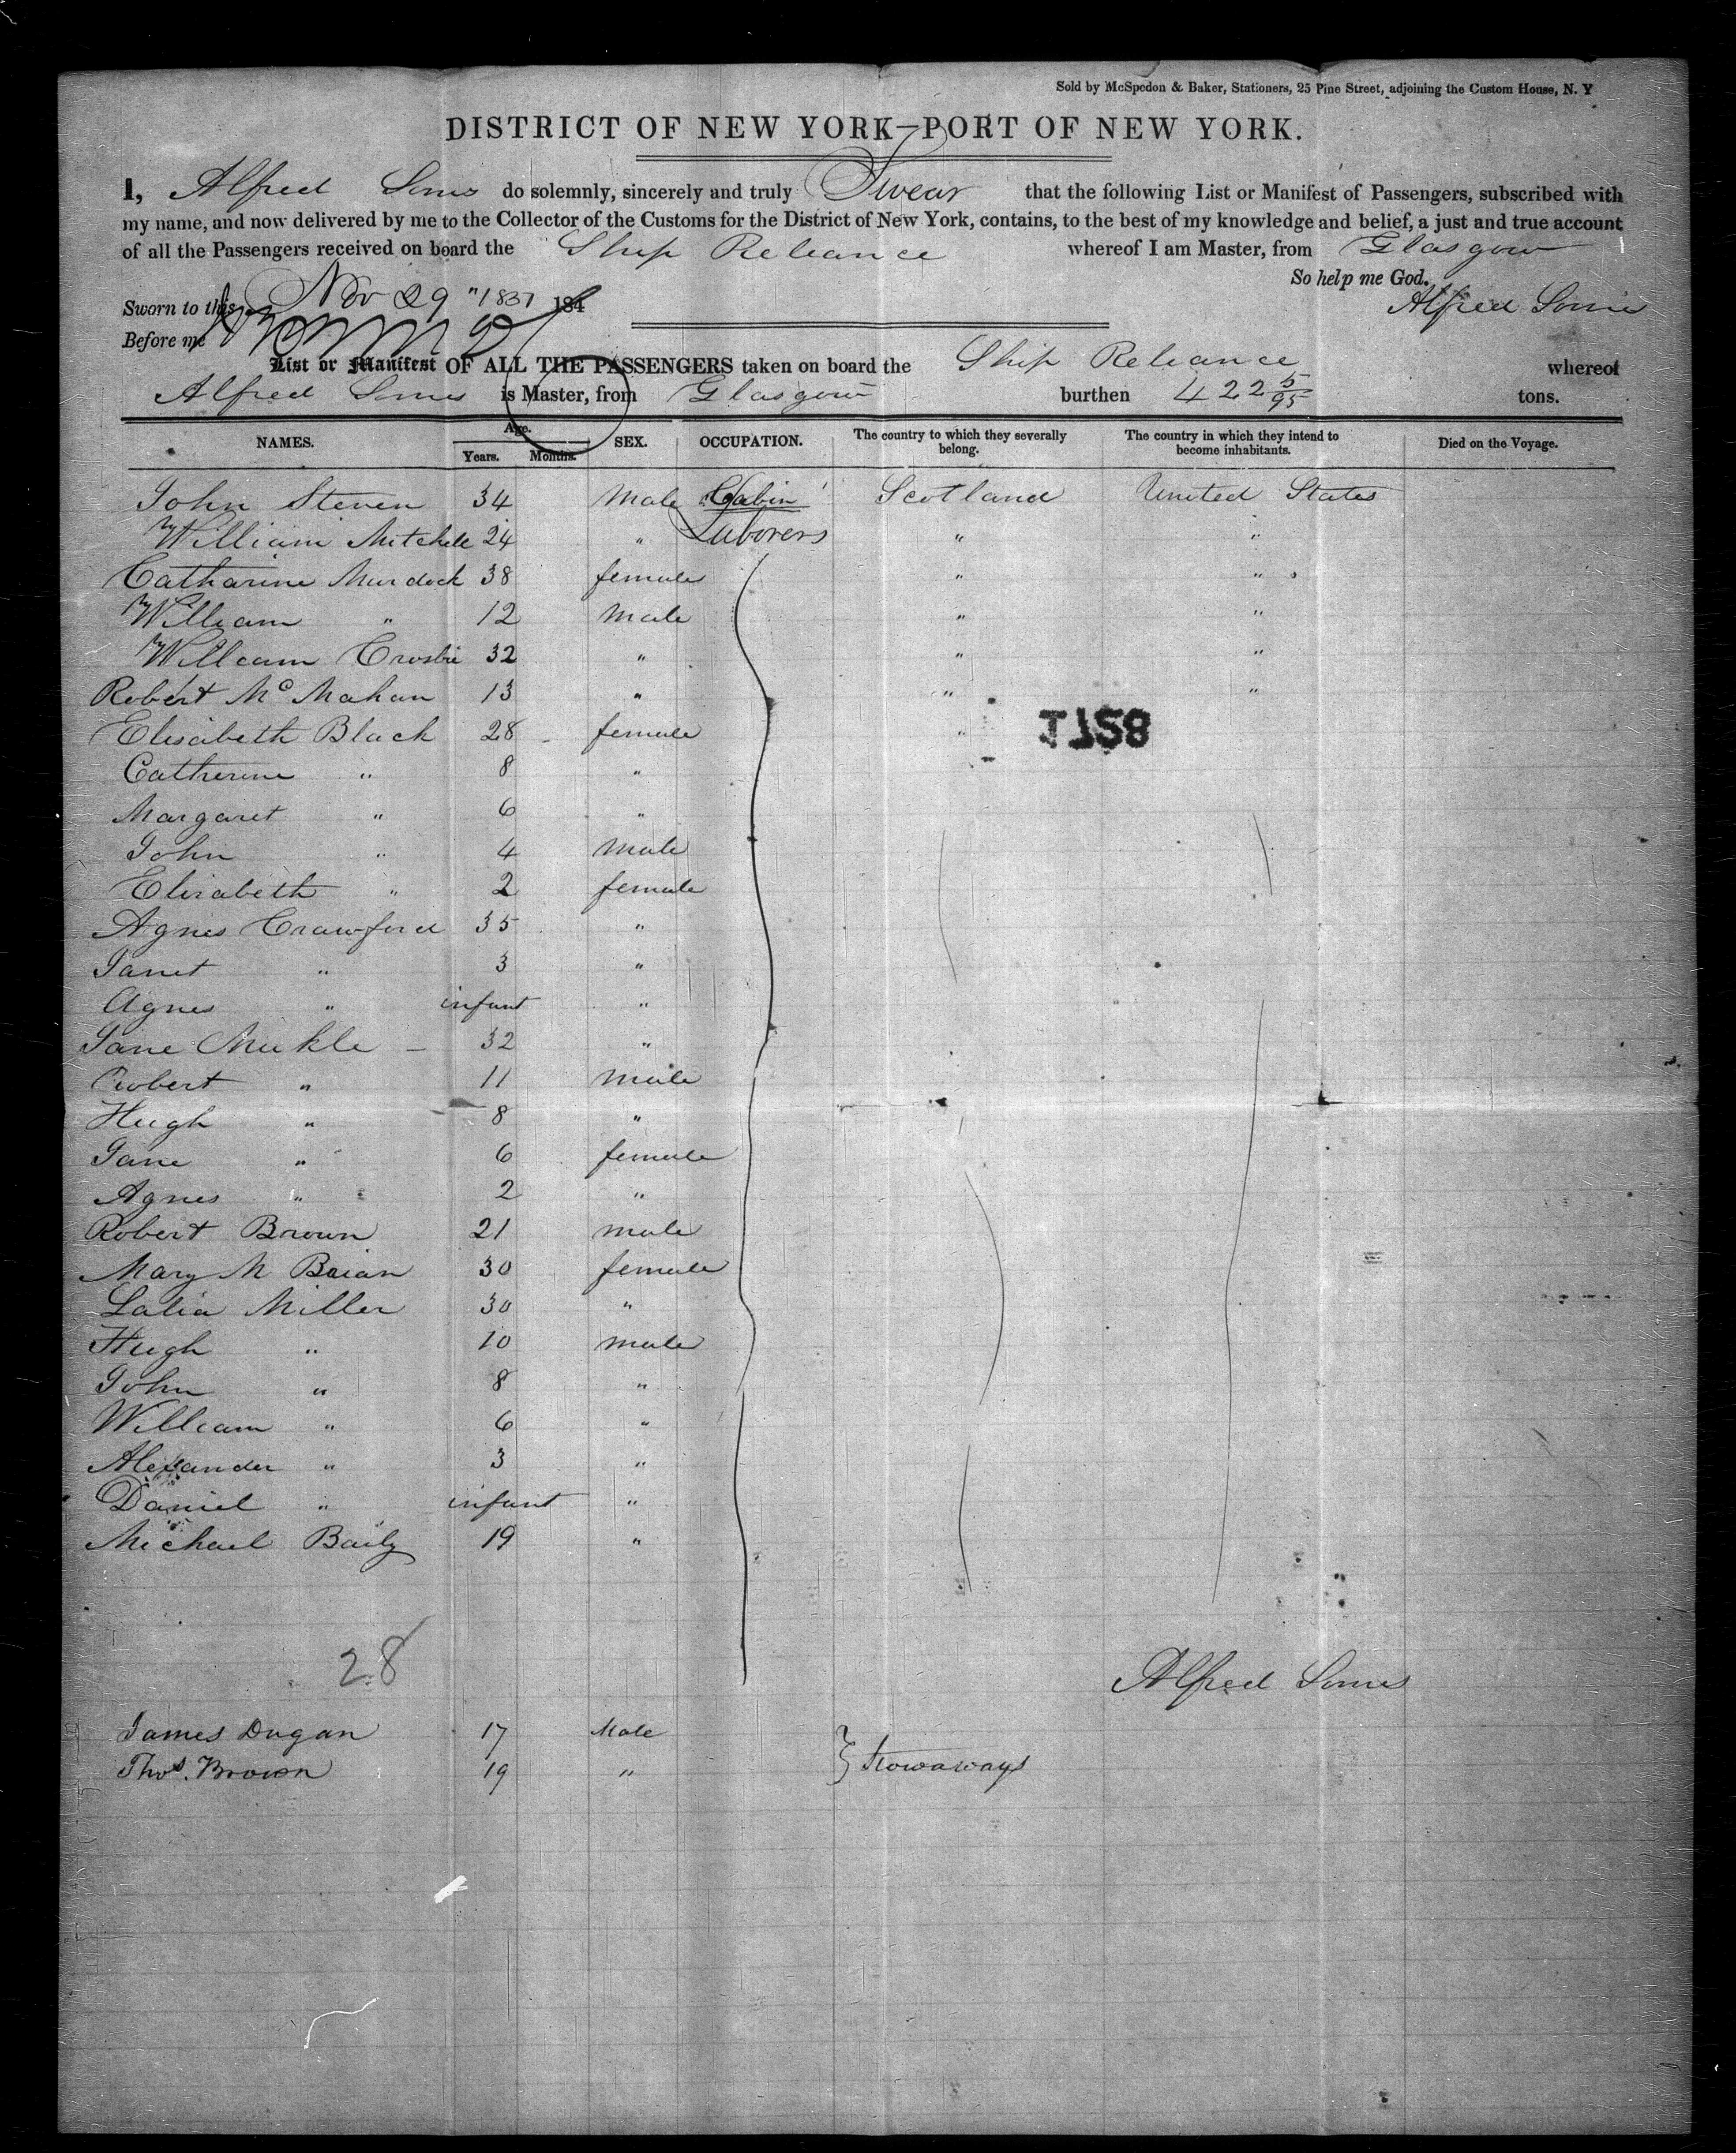 Sold by McSpedon & Baker, Stationers, 25 Pine Street, adjoining the Custom House, N. Y
DISTRICT OF NEW YORK—PORT OF NEW YORK.
I, Alfred Soms do solemnly, sincerely and truly Swear that the following List or Manifest of Passengers, subscribed with
my name, and now delivered by me to the Collector of the Customs for the District of New York, contains, to the best of my knowledge and belief, a just and true account
of all the Passengers received on board the Ship Reliance whereof I am Master, from Glasgow
So help me God.
Sworn to this Nov 29 " 1837 184 Alfred Soms
Before me
List or Manifest OF ALL THE PASSENGERS taken on board the Ship Reliance whereof
Alfred Soms is Master, from Glasgow burthen 422 5/95 tons.
NAMES. Age. Years. Months. SEX. OCCUPATION. The country to which they severally belong. The country in which they intend to become inhabitants. Died on the Voyage.
John Steven 34 Male Cabin Scotland United States
William Mitchell 24 " Laborers " "
Catharine Murdock 38 female " "
William " 12 Male " "
William Crosbie 32 " " "
Robert Mc Mahan 13 " " "
Elisabeth Black 28 female "
1158
Catherine " 8 "
Margaret " 6 "
John " 4 Male
Elisabeth " 2 female
Agnes Crawford 35 "
Janet " 3 "
Agnes " infant "
Jane Meikle 32 "
Robert " 11 Male
Hugh " 8 "
Jane " 6 female
Agnes " 2 "
Robert Brown 21 male
Mary M Brian 30 female
Lalia Miller 30 "
Hugh " 10 male
John " 8 "
William " 6 "
Alexander " 3 "
Daniel " infant "
Michael Baily 19 "
28
Alfred Soms
James Dugan 17 Male
Thos. Brown 19 " } Stowaways